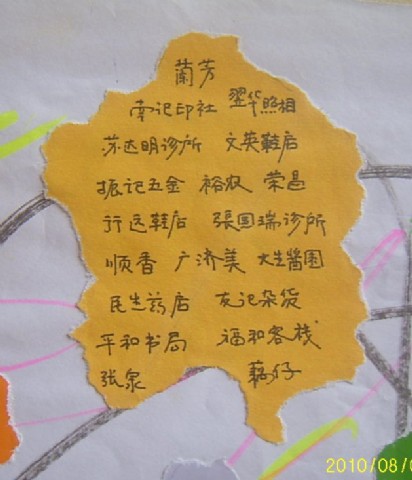 蘭芳
南记印社 翌华照相
苏达明诊所 文英鞋店
振记五金 裕农 荣昌
行远鞋店 張国瑞诊所
顺香 广济美 大生醬園
民生药店 友记杂货
平和书局 福和客栈
张泉 藕仔
2010/08/0